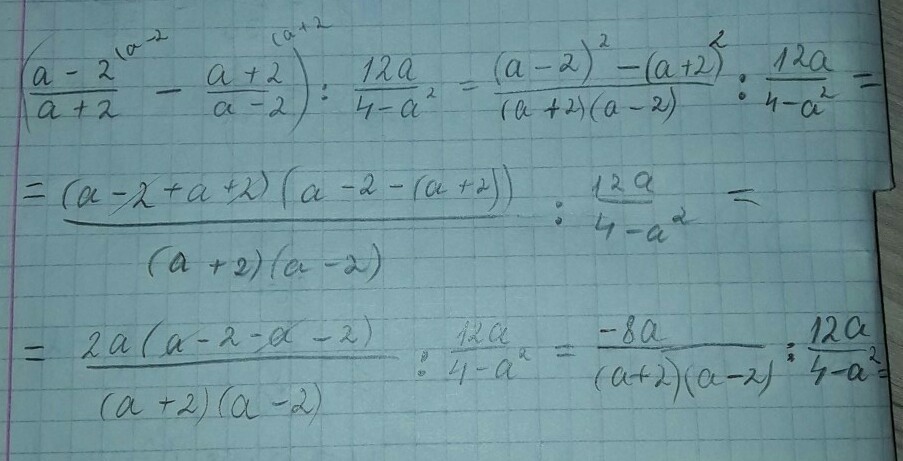 ((a-2)/(a+2) ^(a-2 - (a+2)/(a-2) ^(a+2) : 12a/(4-a²) = ((a-2)² -(a+2)²)/((a+2)(a-2)) : 12a/(4-a²) =
= (a-2+a+2)(a-2-(a+2))/((a+2)(a-2)) : 12a/(4-a²) =
= 2a(a-2-a-2)/((a+2)(a-2)) : 12a/(4-a²) = -8a/((a+2)(a-2)) : 12a/(4-a²) =